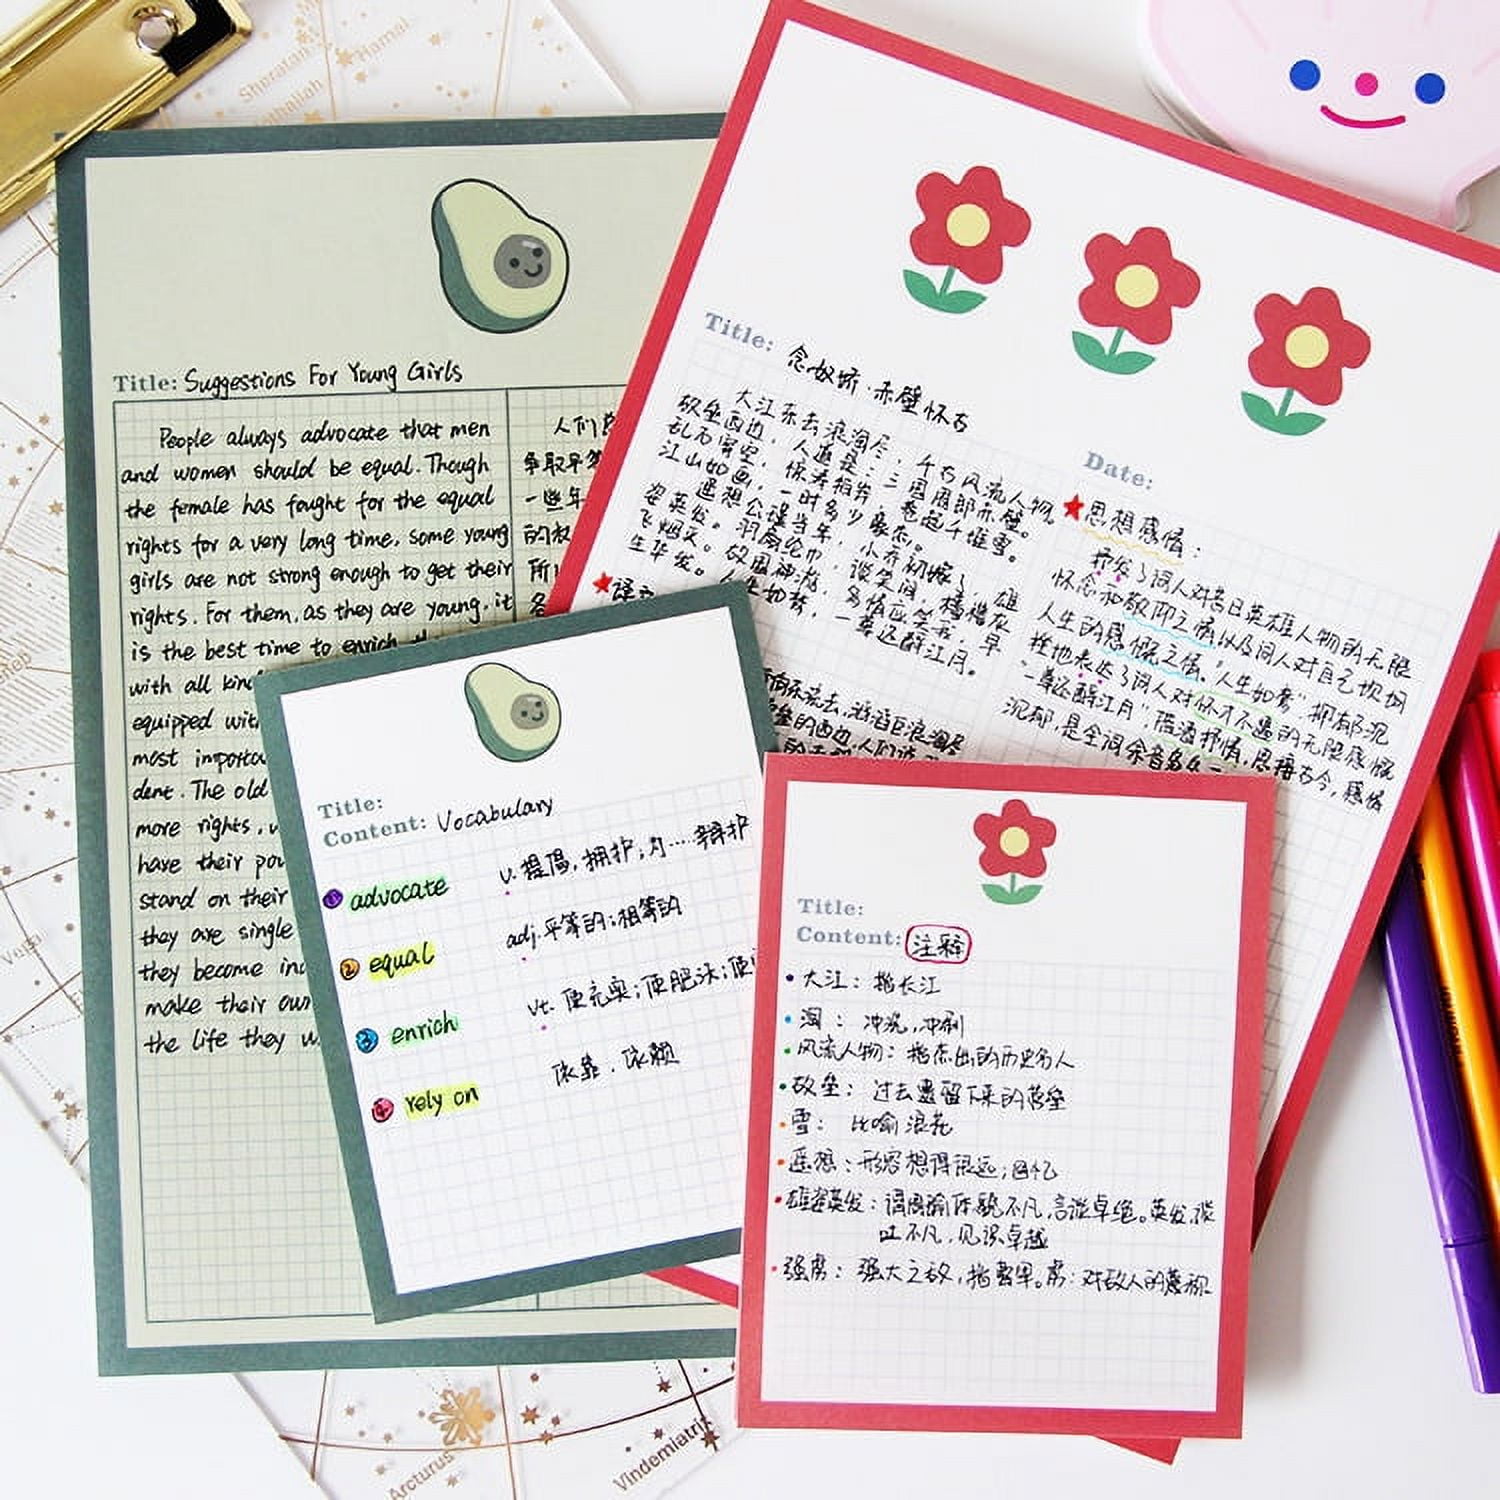 Hamal
Title: Suggestions For Young Girls
People always advocate that men
and women should be equal. Though
the female has fought for the equal
rights for a very long time, some young
girls are not strong enough to get their
rights. For them, as they are young, it
is the best time to enrich
with all
equipped
most
dent. The old
more rights,
have their
stand on their
they are single
they become
make their own
the life they
人们
争取平等
一些年
的权
所
各
Title: 念奴娇·赤壁怀古
大江东去,浪淘尽,千古风流人物。
故垒西边,人道是:三国周郎赤壁。
乱石穿空,惊涛拍岸,卷起千堆雪。
江山如画,一时多少豪杰。
遥想公瑾当年,小乔初嫁了,雄
姿英发。羽扇纶巾,谈笑间,樯橹灰
飞烟灭。故国神游,多情应笑我,早
生华发。人生如梦,一尊还酹江月。
Date:
思想感情:
抒发了词人对昔日英雄人物的无限
怀念和敬仰之情以及词人对自己坎坷
人生的感慨之情。"人生如梦",抑郁沉
挫地表达了词人对怀才不遇的无限感慨
"一尊还酹江月",借酒抒情,思接古今,感情
沉郁,是全词余音
Title:
Content: Vocabulary
1 advocate v. 提倡,拥护;为……辩护
2 equal adj. 平等的;相等的
3 enrich vt. 使充实;使肥沃;使
4 rely on 依靠,依赖
Title:
Content: 注释
大江:指长江
淘:冲洗,冲刷
风流人物:指杰出的历史名人
故垒:过去遗留下来的营垒
雪:比喻浪花
遥想:形容想得很远;回忆
雄姿英发:谓周瑜体貌不凡,言谈卓绝。英发,谈
吐不凡,见识卓越
强虏:强大之敌,指曹军。虏:对敌人的蔑称
Vega
Arcturus
Vindemiatrix